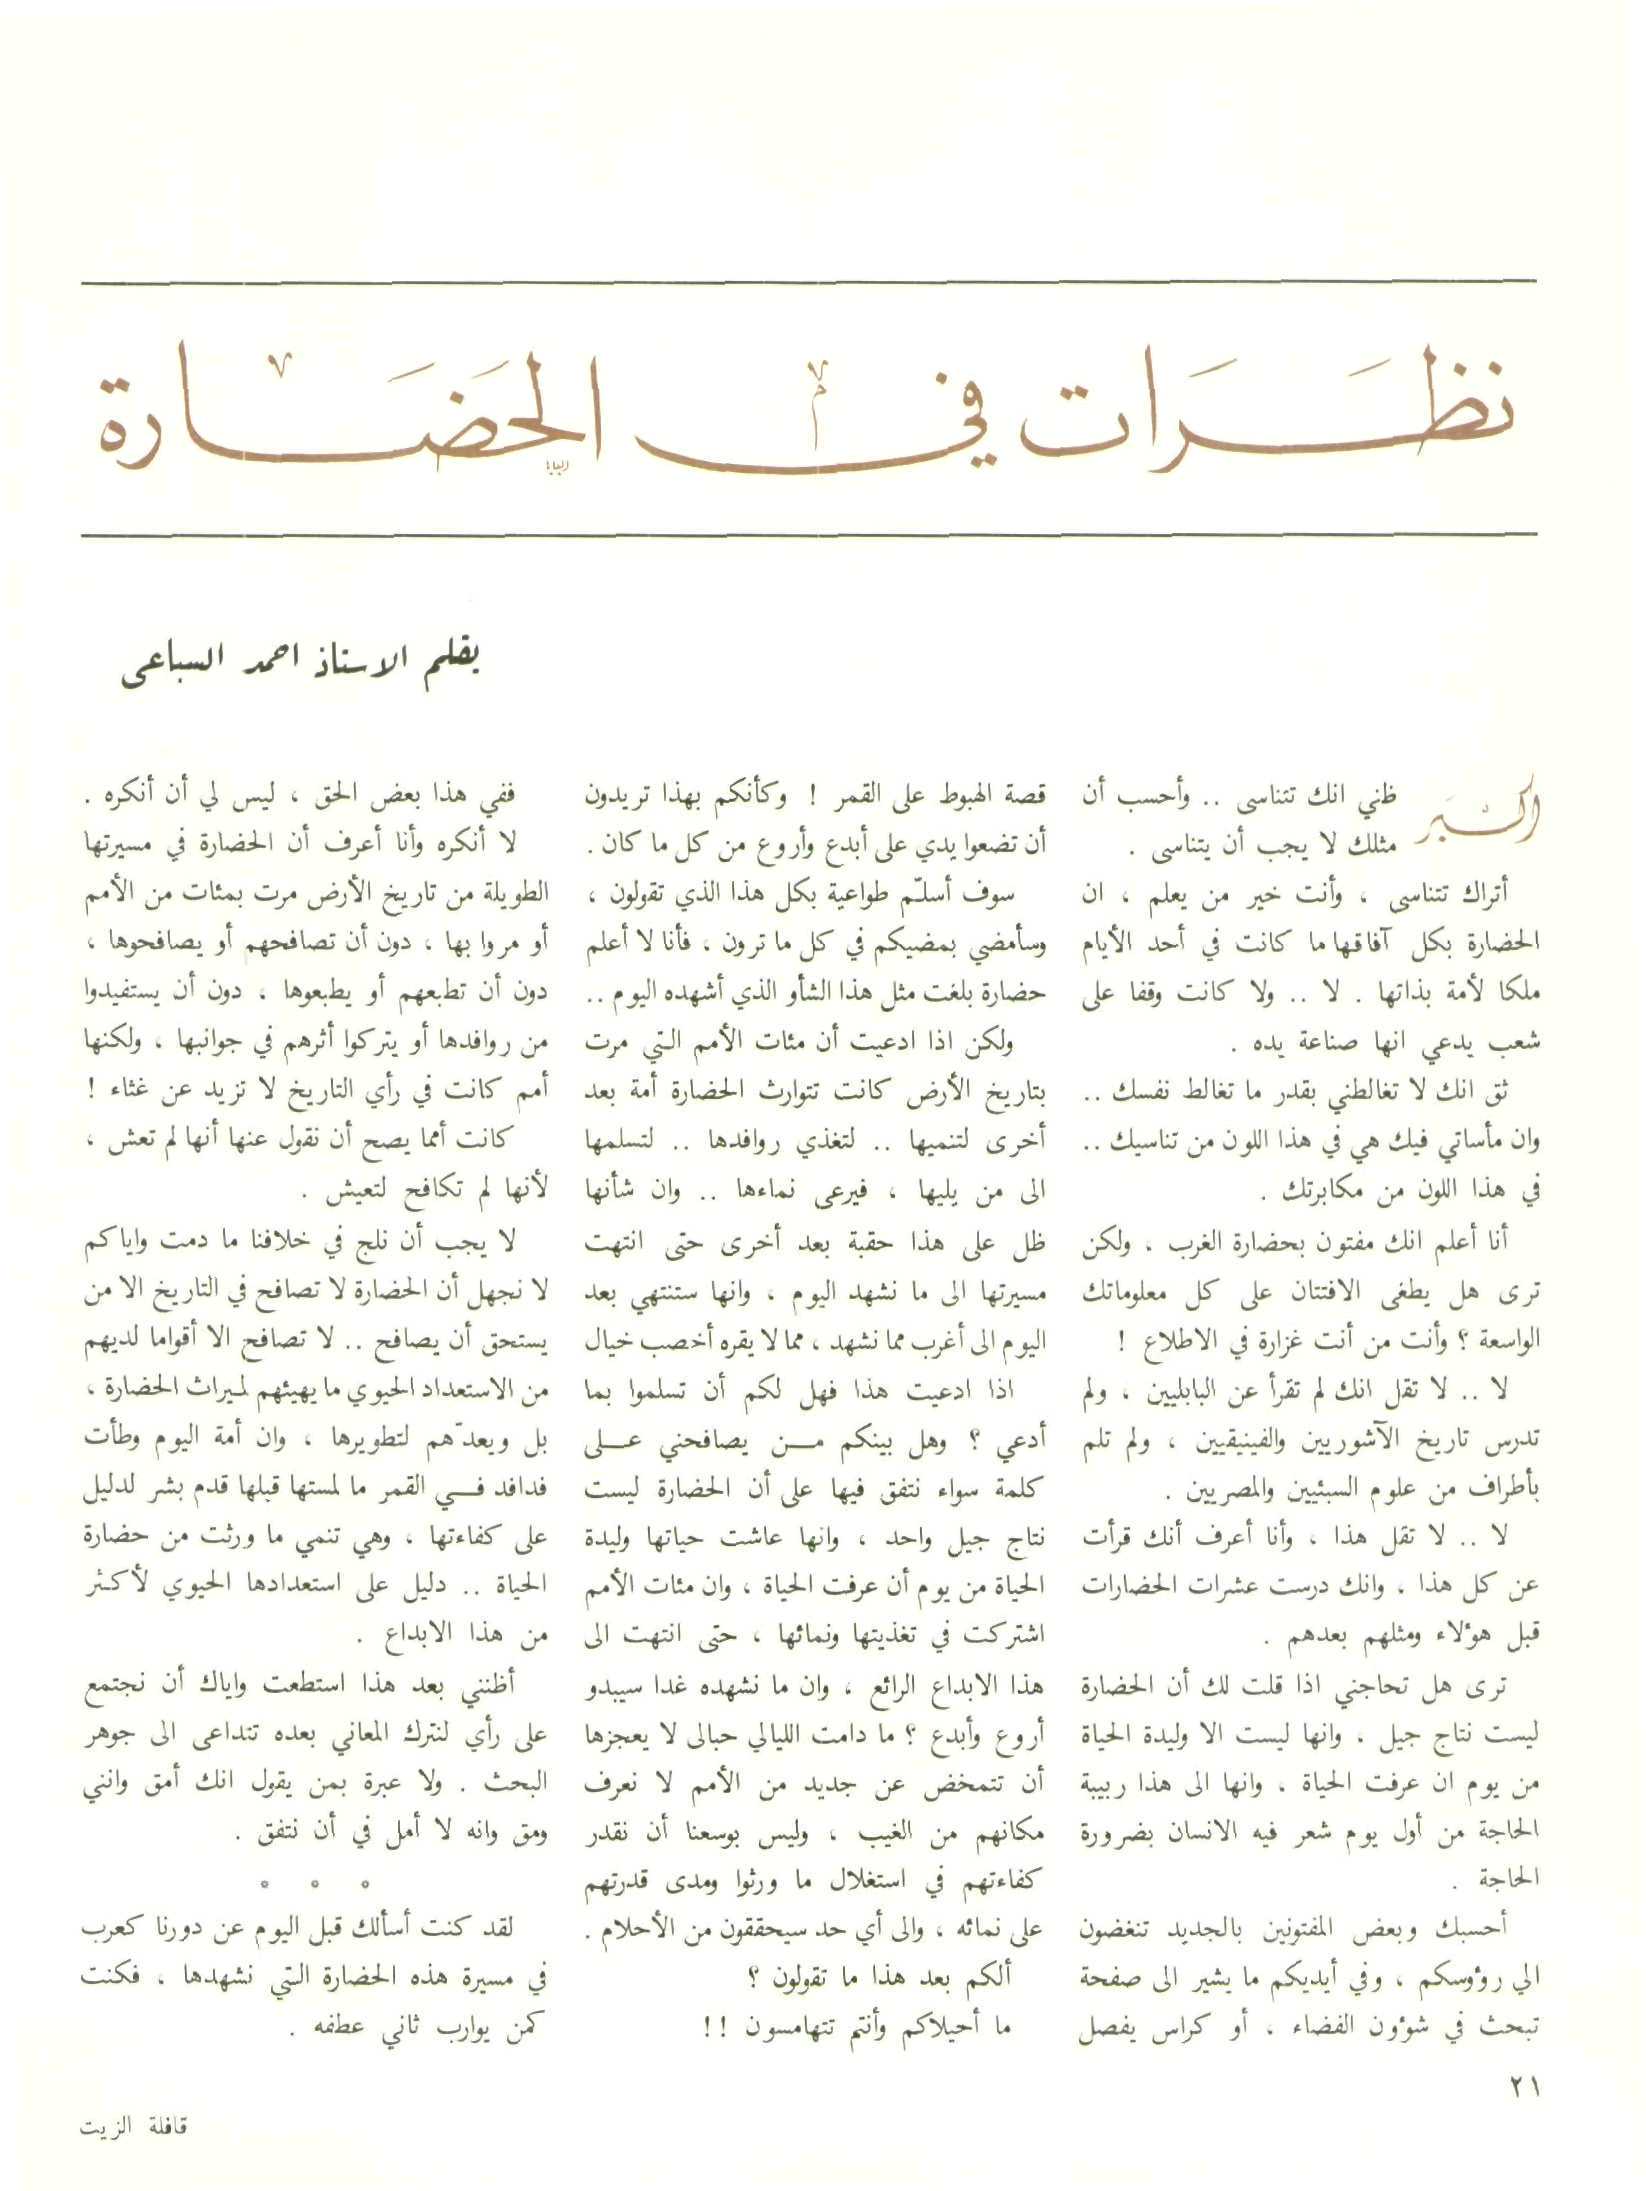 نظرات في الحضارة
بقلم الاستاذ احمد السباعي
أكبر ظني انك تتناسى .. وأحسب أن
مثلك لا يجب أن يتناسى .
أتراك تتناسى ، وأنت خير من يعلم ، ان
الحضارة بكل آفاقها ما كانت في أحد الأيام
ملكا لأمة بذاتها . لا .. ولا كانت وقفا على
شعب يدعي انها صناعة يده .
ثق انك لا تغالطني بقدر ما تغالط نفسك ..
وان مأساتي فيك هي في هذا اللون من تناسيك ..
في هذا اللون من مكابرتك .
أنا أعلم انك مفتون بحضارة الغرب ، ولكن
ترى هل يطغى الافتتان على كل معلوماتك
الواسعة ؟ وأنت من أنت غزارة في الاطلاع !
لا .. لا تقل انك لم تقرأ عن البابليين ، ولم
تدرس تاريخ الآشوريين والفينيقيين ، ولم تلم
بأطراف من علوم السبئيين والمصريين .
لا .. لا تقل هذا ، وأنا أعرف أنك قرأت
عن كل هذا ، وانك درست عشرات الحضارات
قبل هؤلاء ومثلهم بعدهم .
ترى هل تحاجني اذا قلت لك أن الحضارة
ليست نتاج جيل ، وانها ليست الا وليدة الحياة
من يوم ان عرفت الحياة ، وانها الى هذا ربيبة
الحاجة من أول يوم شعر فيه الانسان بضرورة
الحاجة .
أحسبك وبعض المفتونين بالجديد تنغضون
الي رؤوسكم ، وفي أيديكم ما يشير الى صفحة
تبحث في شؤون الفضاء ، أو كراس يفصل
قصة الهبوط على القمر ! وكأنكم بهذا تريدون
أن تضعوا يدي على أبدع وأروع من كل ما كان .
سوف أسلّم طواعية بكل هذا الذي تقولون ،
وسأمضي بمضيكم في كل ما ترون ، فأنا لا أعلم
حضارة بلغت مثل هذا الشأو الذي أشهده اليوم ..
ولكن اذا ادعيت أن مئات الأمم التي مرت
بتاريخ الأرض كانت تتوارث الحضارة أمة بعد
أخرى لتنميها .. لتغذي روافدها .. لتسلمها
الى من يليها ، فيرعى نماءها .. وان شأنها
ظل على هذا حقبة بعد أخرى حتى انتهت
مسيرتها الى ما نشهد اليوم ، وانها ستنتهي بعد
اليوم الى أغرب مما نشهد ، مما لا يقره أخصب خيال
اذا ادعيت هذا فهل لكم أن تسلموا بما
أدعي ؟ وهل بينكم من يصافحني على
كلمة سواء نتفق فيها على أن الحضارة ليست
نتاج جيل واحد ، وانها عاشت حياتها وليدة
الحياة من يوم أن عرفت الحياة ، وان مئات الأمم
اشتركت في تغذيتها ونمائها ، حتى انتهت الى
هذا الابداع الرائع ، وان ما نشهده غدا سيبدو
أروع وأبدع ؟ ما دامت الليالي حبالى لا يعجزها
أن تتمخض عن جديد من الأمم لا نعرف
مكانهم من الغيب ، وليس بوسعنا أن نقدر
كفاءتهم في استغلال ما ورثوا ومدى قدرتهم
على نمائه ، والى أي حد سيحققون من الأحلام .
ألكم بعد هذا ما تقولون ؟
ما أحيلاكم وأنتم تتهامسون !!
ففي هذا بعض الحق ، ليس لي أن أنكره .
لا أنكره وأنا أعرف أن الحضارة في مسيرتها
الطويلة من تاريخ الأرض مرت بمئات من الأمم
أو مروا بها ، دون أن تصافحهم أو يصافحوها ،
دون أن تطبعهم أو يطبعوها ، دون أن يستفيدوا
من روافدها أو يتركوا أثرهم في جوانبها ، ولكنها
أمم كانت في رأي التاريخ لا تزيد عن غثاء !
كانت أمما يصح أن نقول عنها أنها لم تعش ،
لأنها لم تكافح لتعيش .
لا يجب أن نلج في خلافنا ما دمت واياكم
لا نجهل أن الحضارة لا تصافح في التاريخ الا من
يستحق أن يصافح .. لا تصافح الا أقواما لديهم
من الاستعداد الحيوي ما يهيئهم لميراث الحضارة ،
بل ويعدّهم لتطويرها ، وان أمة اليوم وطأت
فدافد في القمر ما لمستها قبلها قدم بشر لدليل
على كفاءتها ، وهي تنمي ما ورثت من حضارة
الحياة .. دليل على استعدادها الحيوي لأكثر
من هذا الابداع .
أظنني بعد هذا استطعت واياك أن نجتمع
على رأي لنترك المعاني بعده تتداعى الى جوهر
البحث . ولا عبرة بمن يقول انك أمق وانني
ومق وانه لا أمل في أن نتفق .
° ° °
لقد كنت أسألك قبل اليوم عن دورنا كعرب
في مسيرة هذه الحضارة التي نشهدها ، فكنت
كمن يوارب ثاني عطفه .
٢١
قافلة الزيت